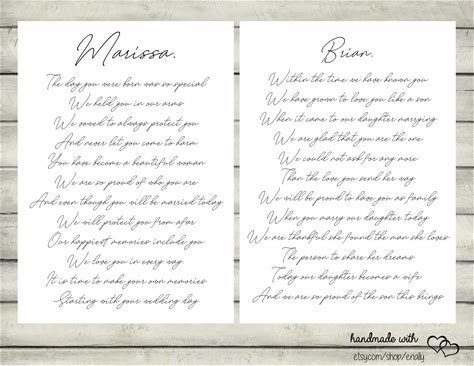 Marissa.
The day you were born was so special
We held you in our arms
We vowed to always protect you
And never let you come to harm
You have become a beautiful woman
We are so proud of who you are
And even though you will be married today
We will protect you from afar
Our happiest memories include you
We love you in every way
It is time to make your own memories
Starting with your wedding day
Brian.
Within the time we have known you
We have grown to love you like a son
When it came to our daughter marrying
We are glad that you are the one
We could not ask for any more
Than the love you send her way
We will be proud to have you as family
When you marry our daughter today
We are thankful she found the man she loves
The person to share her dreams
Today our daughter becomes a wife
And we are so proud of the son this brings
handmade with
etsy.com/shop/enally